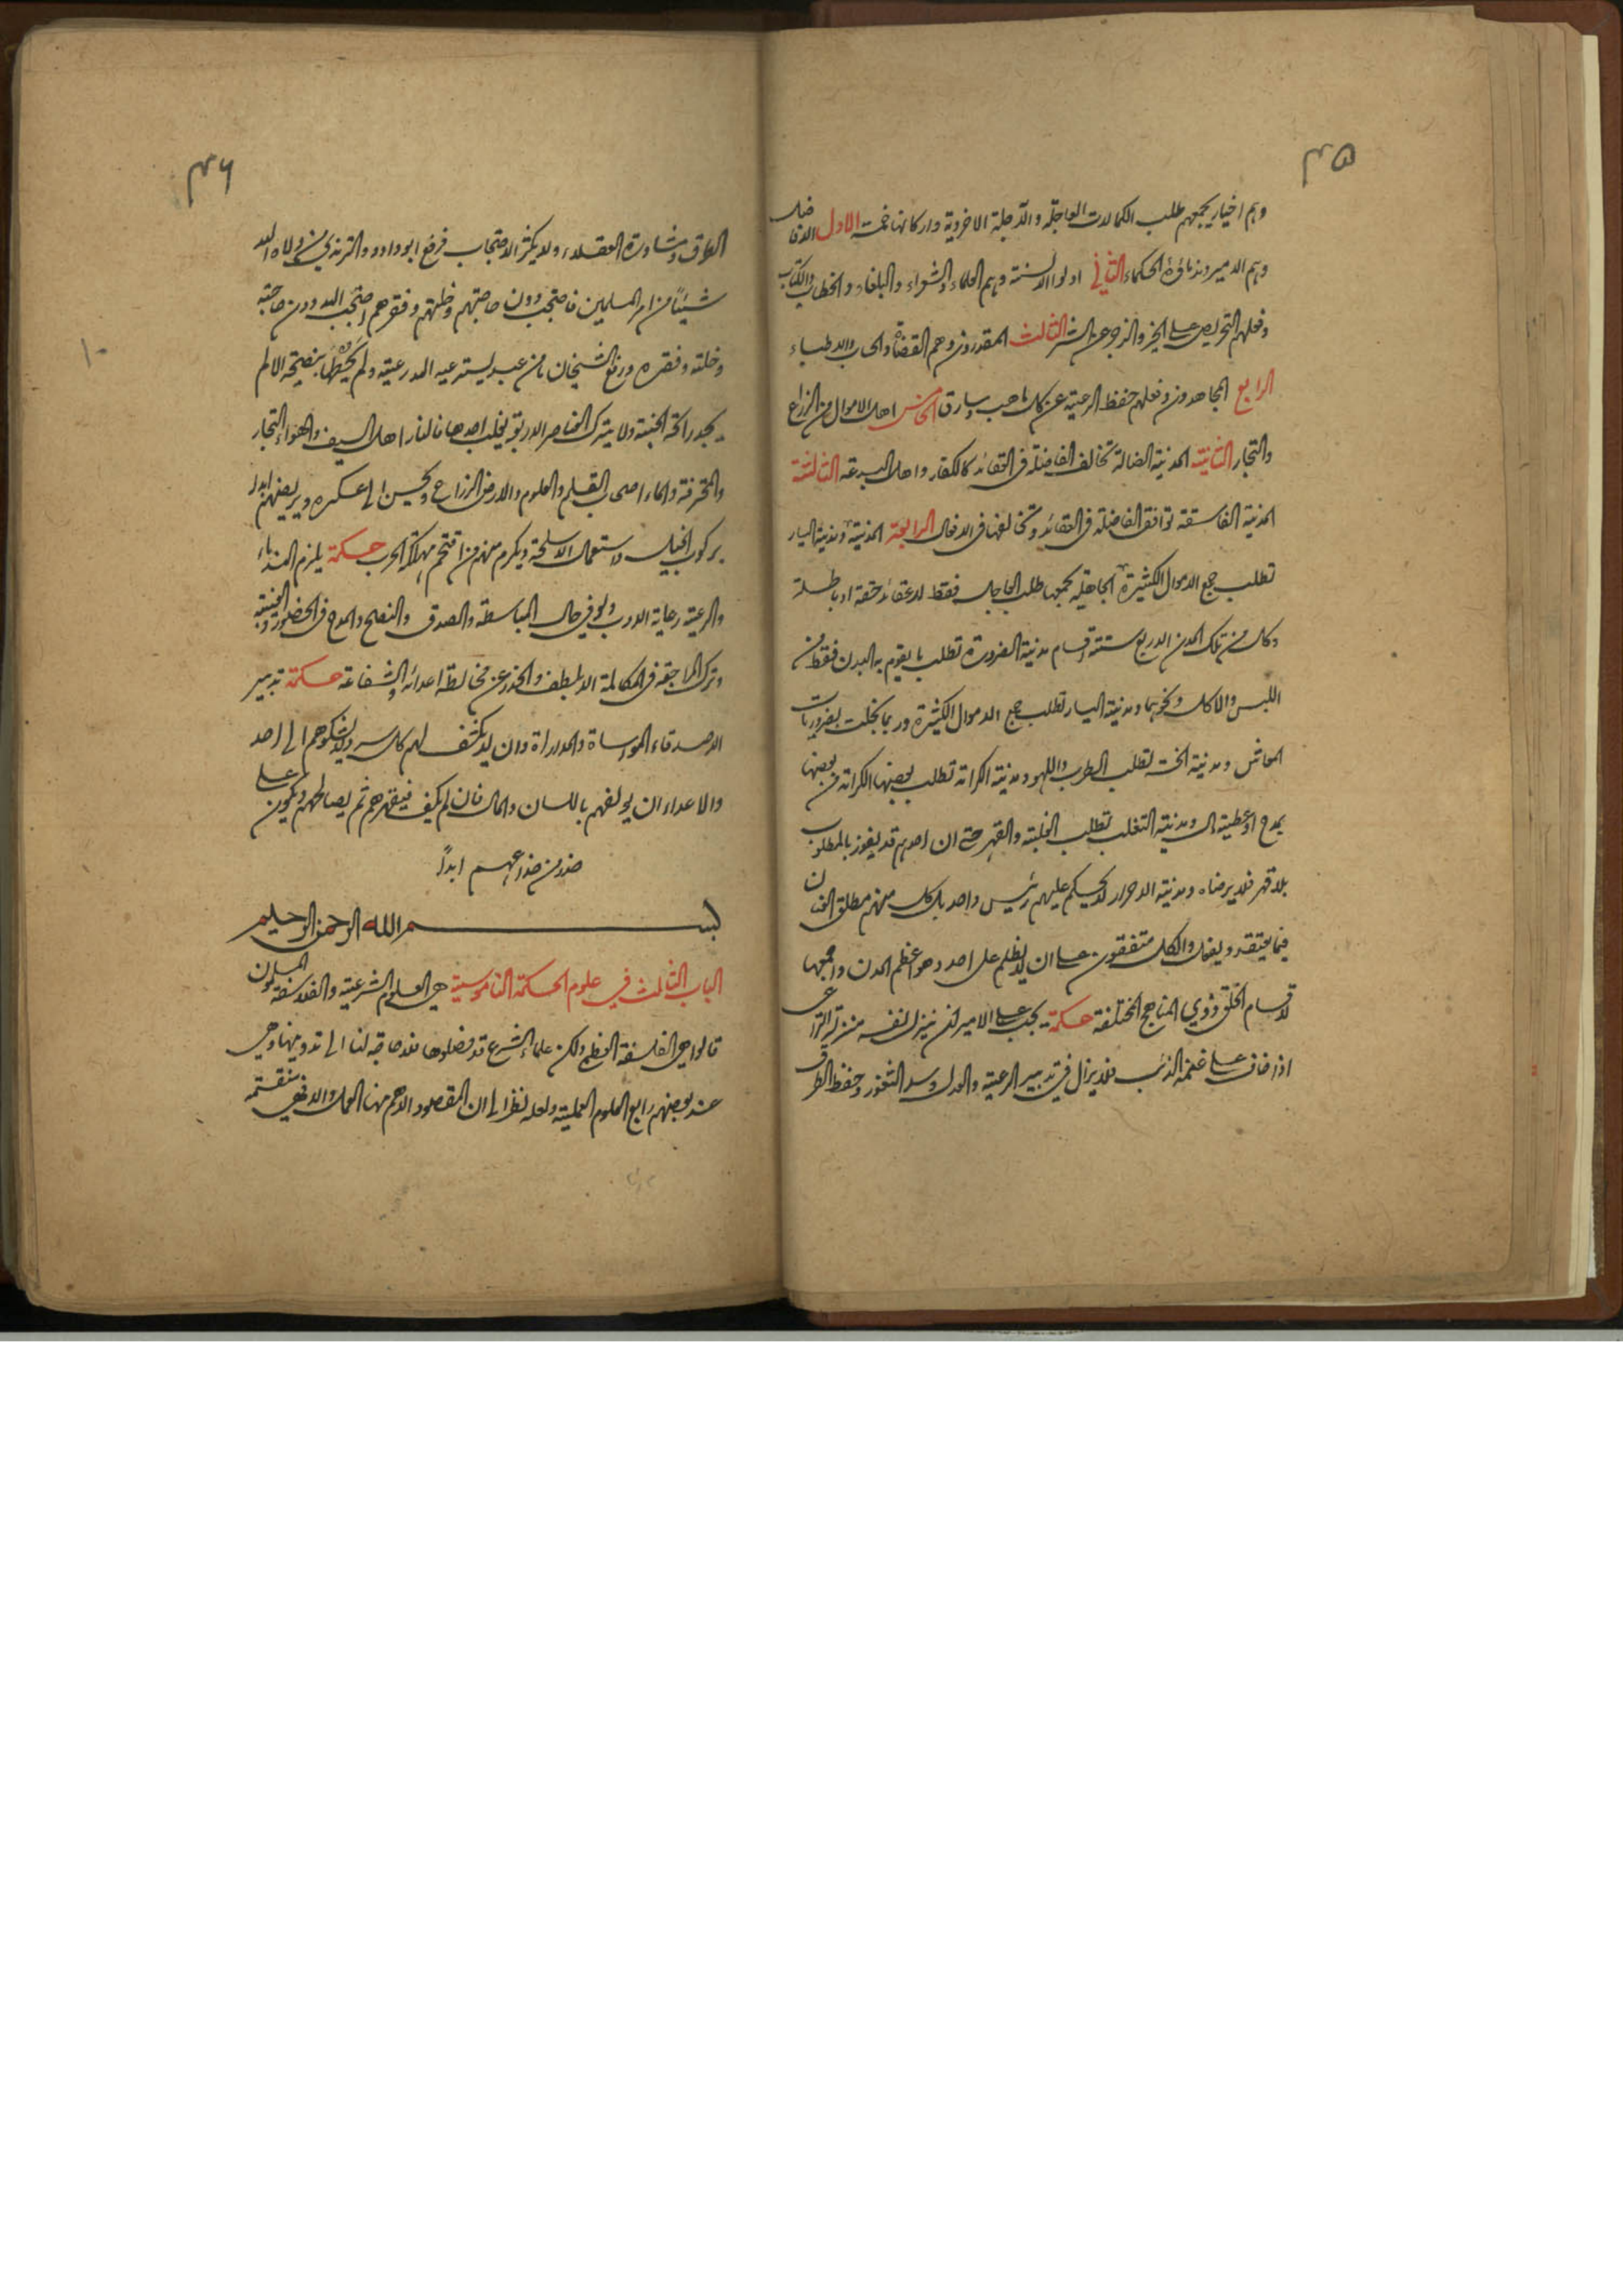 ٤٥
وهم اخيار يجمعهم طلب الكمالات العاجلة والآجلة الاخروية واركانها خمسة الاول الافاضل
وهم الامير وندماؤه الحكماء الثاني اولوا الالسنة وهم العلماء والشعراء والبلغاء والخطاب والكتاب
وفعلهم التحريص على الخير والزجر عن الشر الثالث المقدرون وهم القضاة والحساب والاطباء
الرابع المجاهدون وفعلهم حفظ الرعية عن كل ناهب وسارق الخامس اهل الاموال من الزراع
والتجار الثانية المدنية الضالة تخالف الفاضلة في العقائد كالكفار واهل البدعة الثالثة
المدنية الفاسقة توافق الفاضلة في العقائد وتخالفها في الافعال الرابعة المدنية ومدنية اليسار
تطلب جمع الاموال الكثيرة الجاهلية يجمعها طلب العاجل فقط لا عقائد حقة او باطلة
وكل من تلك المدن الاربع ستة اقسام مدنية الضرورة تطلب ما يقوم به البدن فقط من
اللبس والاكل ونحوهما ومدنية اليسار تطلب جمع الاموال الكثيرة وربما بخلت بضروريات
المعاش ومدنية الخسة تطلب الطرب واللهو ومدنية الكرامة تطلب بعضها الكرامة من بعضها
بمدح او عطية مال ومدنية التغلب تطلب الغلبة والقهر حتى ان احدهم قد يفوز بالمطلوب
بلا قهر فلا يرضاه ومدنية الاحرار لا يحكم عليهم رئيس واحد بل كل منهم مطلق العنان
فيما يعتقد ويفعل والكل متفقون على ان لا يظلم على احد وهو اعظم المدن واجمعها
لاقسام الخلق وذوي المناهج المختلفة حكمة يجب على الامير ان ينزل نفسه منزلة الراعي
اذا خاف على غنمه الذئب فلا يزال في تدبير الرعية والعدل وسد الثغور وحفظ الطرق
٤٦
الطرق ومشاورة العقلاء ولا يكثر الاحتجاب فرفع ابو داود والترمذي من ولاه الله
شيئا من امر المسلمين فاحتجب دون حاجتهم وخلتهم وفقرهم احتجب الله دون حاجته
وخلته وفقره ورفع الشيخان ما من عبد يسترعيه الله رعية ولم يحطها بنصيحة الا لم
يجد رائحة الجنة ولا يترك العناصر الاربع يغلب احدها فالنار اهل السيف والهواء التجار
والمحترفة والماء اصحاب القلم والعلوم والارض الزراع ويحسن الى عسكره ويريضهم ابدا
بركوب الخيل واستعمال الاسلحة ويكرم منهم من اقتحم مهلكة الحرب حكمة يلزم الندماء
والرعية رعاية الادب ولو في حال المباسطة والصدق والنصح والمدح في الحضور والغيبة
وترك المراجعة في المكالمة الا بلطف والحذر عن مخالطة اعدائه والشفاعة حكمة تدبير
الاصدقاء المواساة والمداراة وان لا يكشف لهم كل سر ولا يشكوهم الى احد
والاعداء ان يؤلفهم باللسان والمال فان لم يكف فيقهرهم ثم يصالحهم ويكون على
حذر من خداعهم ابداً
بسم الله الرحمن الرحيم
الباب الثالث في علوم الحكمة الناموسية هي العلوم الشرعية والفلاسفة المسلمون
قالوا هي الفلسفة العظمى ولكن علماء الشرع قد فصلوها فلا حاجة لنا الى تدوينها وهي
عند بعضهم رابع العلوم العملية ولعله نظرا الى ان المقصود الاهم منها العمل والا فهي منقسمة
١٠